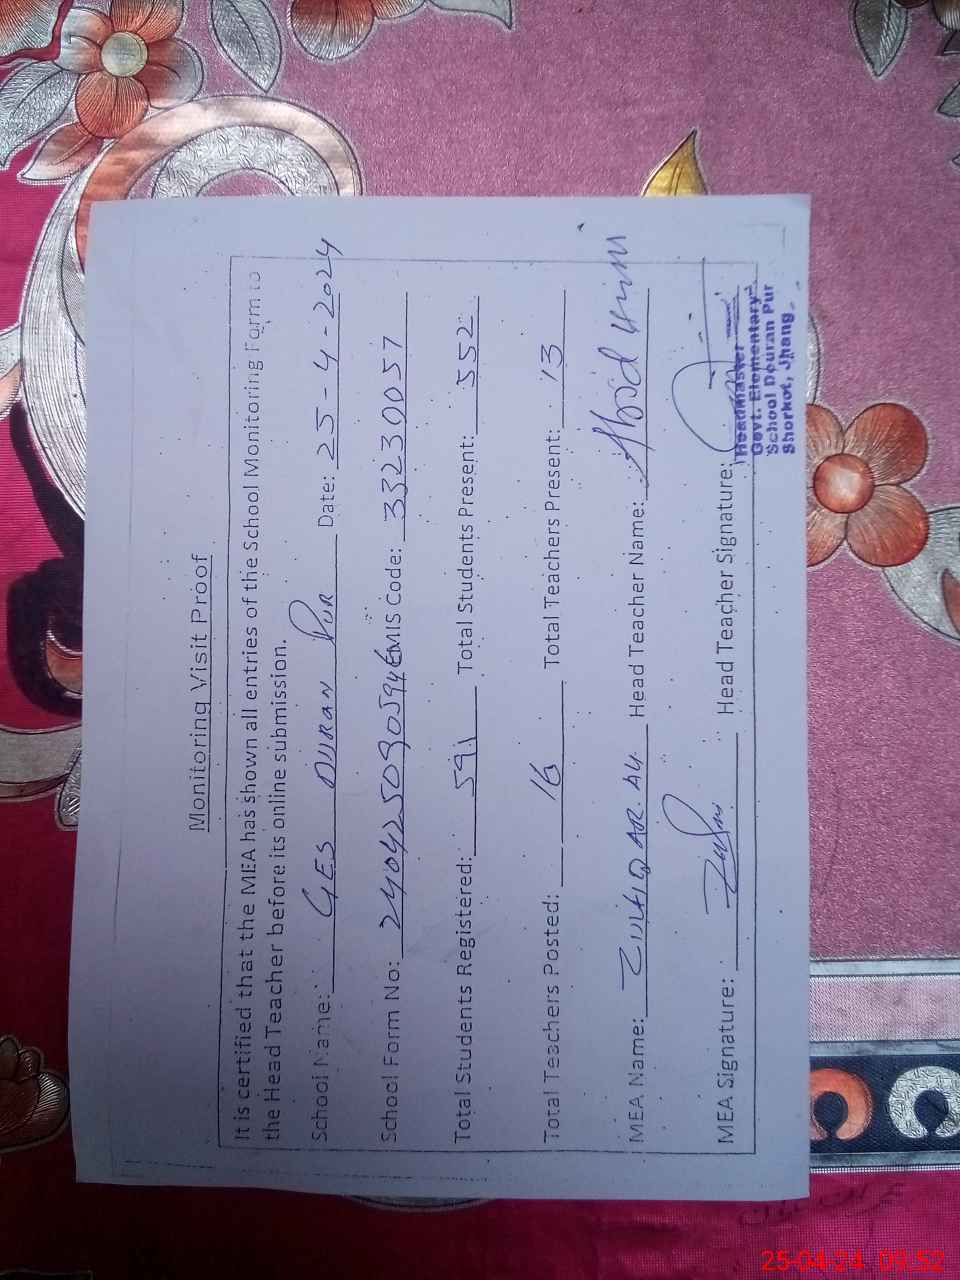 Monitoring Visit Proof
It is certified that the MEA has shown all entries of the School Monitoring Form to
the Head Teacher before its online submission.
School Name: GES DURAN PUR Date: 25-4-2024
School Form No: EMIS Code: 33230057
Total Students Registered: 591 Total Students Present: 552
Total Teachers Posted: 16 Total Teachers Present: 13
MEA Name: ZULFIQAR ALI Head Teacher Name:
MEA Signature: Head Teacher Signature:
Headmaster
Govt. Elementary
School Douran Pur
Shorkot, Jhang
25-04-24 09:52